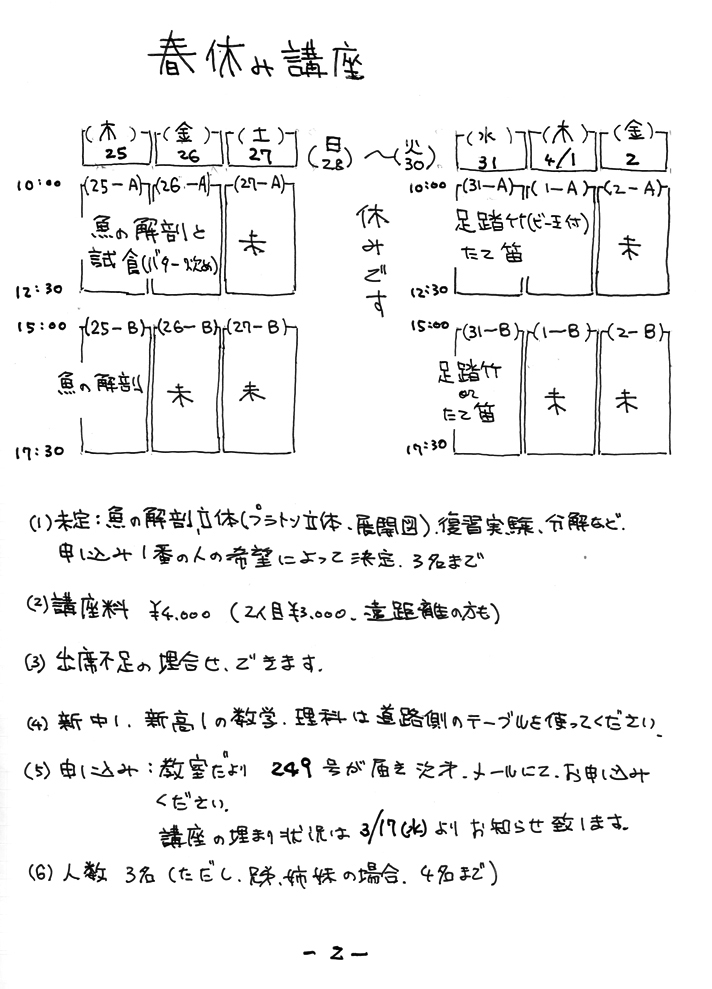 春休み講座
(木) (金) (土) (日) 〜 (火) (水) (木) (金)
25 26 27 28 30 31 4/1 2
10:00 (25-A) (26-A) (27-A) 休みです 10:00 (31-A) (1-A) (2-A)
魚の解剖と 未 足踏竹(ビー玉付) 未
試食(バター炊め) たて笛
12:30 12:30
15:00 (25-B) (26-B) (27-B) 15:00 (31-B) (1-B) (2-B)
魚の解剖 未 未 足踏竹 未 未
or
たて笛
17:30 17:30
(1)未定:魚の解剖、立体(プラトン立体、展開図)、復習実験、分解など.
申し込み1番の人の希望によって決定.3名まで
(2)講座料 ¥4.000 (2人目¥3.000.遠距離の方も)
(3)出席不足の埋合せ、できます.
(4)新中1.新高1の数学.理科は道路側のテーブルを使ってください.
(5)申し込み:教室だより 249号が届き次オ.メールにて、お申し込み
ください.
講座の埋まり状況は3/17(水)よりお知らせ致します。
(6)人数 3名(ただし、兄弟、姉妹の場合.4名まで)
-2-